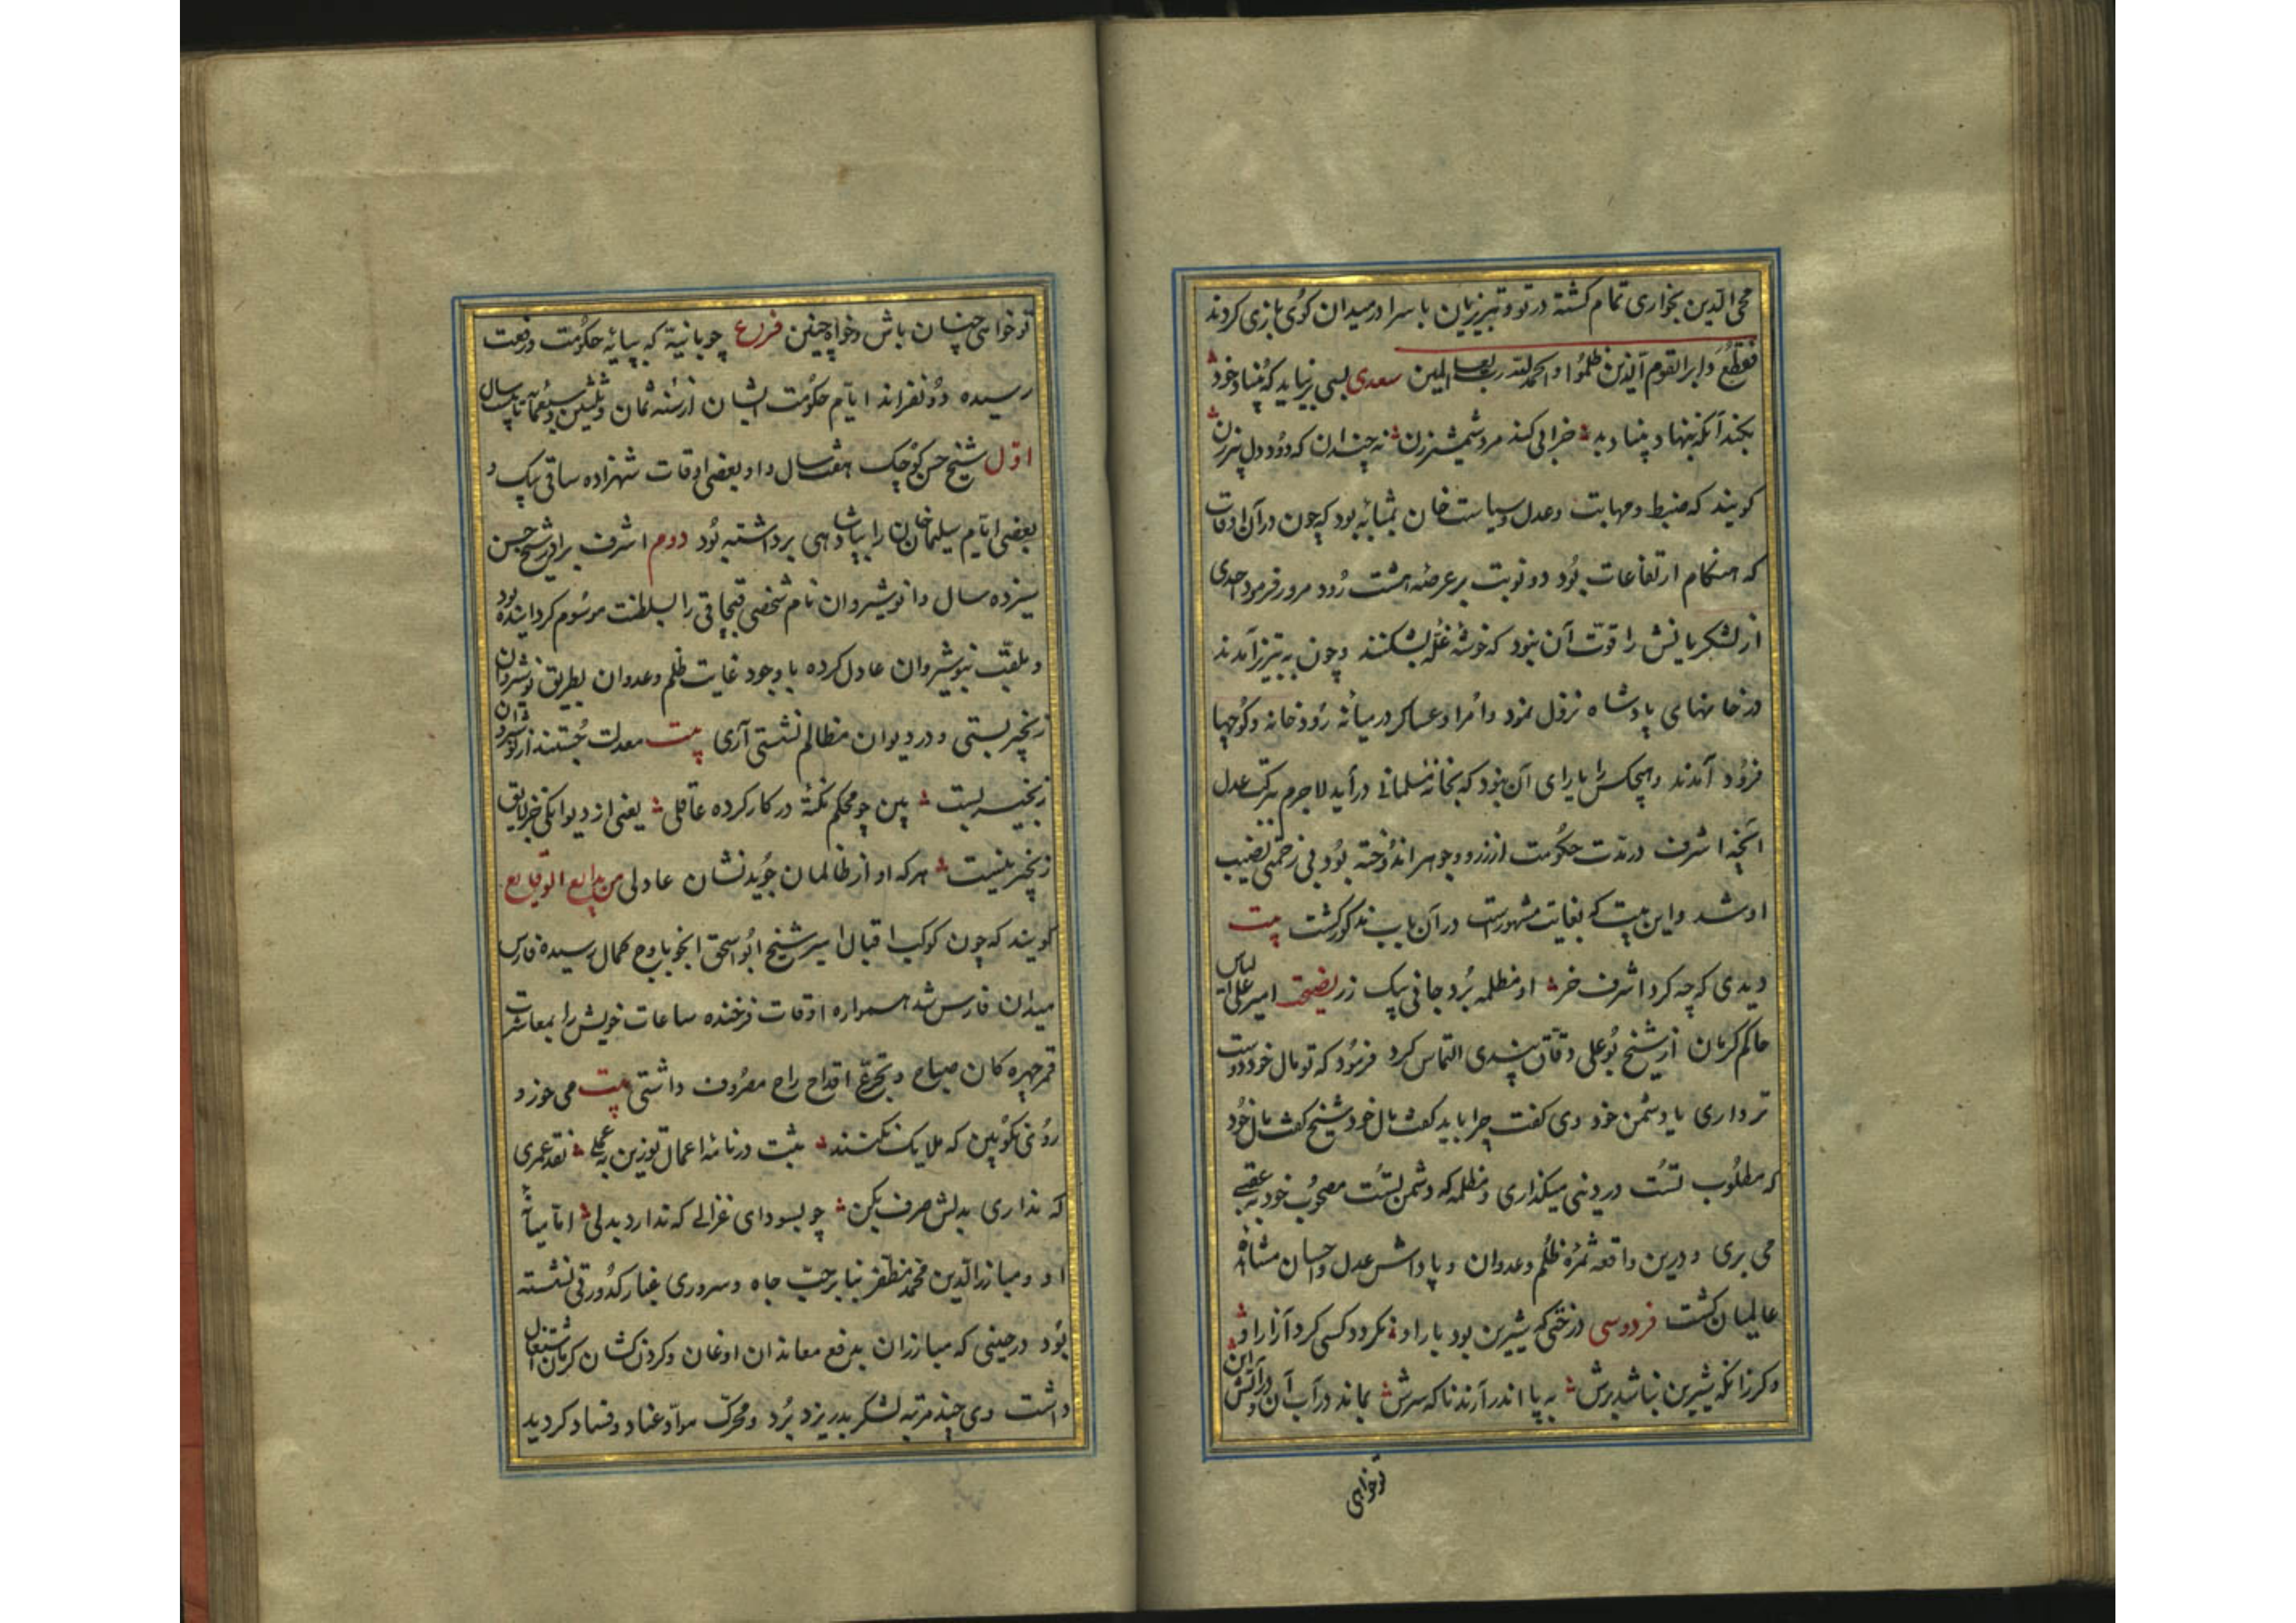 محی الدین بخواری تمام کشته در تو و تبریزیان با سر او در میدان کوی بازی کردند
فقطع دابر القوم الذین ظلموا و الحمد لله رب العالمین سعدی بسی برنیاید که بنیاد خود
بکند آنکه بنهاد بنیاد بد خرابی کند مرد شمشیر زن نه چندان که دود دل پیرزن
کویند که ضبط و مهابت و عدل و سیاست خان بمثابه بود که چون در آن اوقات
که هنکام ارتفاعات بود دو نوبت بر عرضه هشت رود مرور فرمود احدی
از لشکریانش را قوت آن نبود که خوشه غله بشکنند و چون به تبریز آمدند
در خانهای پادشاه نزول نمود و امرا و عساکر در میانه رودخانه و کوچها
فرود آمدند و هیچکس را یارای آن نبود که بخانه مسلمانی درآید لاجرم ببرکت عدل
آنچه اشرف در مدت حکومت از زر و جوهر اندوخته بود بی زحمتی نصیب
او شد و این بیت که بغایت مشهورست در آن باب مذکور کشت بیت
دیدی که چه کرد اشرف خر او مظلمه برد جانی بیک زر نصیحت امیر علی الیاس
حاکم کرمان از شیخ بوعلی دقاق پندی التماس کرد فرمود که تو مال خود دوست
تر داری یا دشمن خود وی کفت چرا باید کفت مال خود شیخ کفت مال خود
که مطلوب تست در دنیی میکذاری و مظلمه که دشمن تست مصحوب خود به عقبی
می بری و درین واقعه ثمره ظلم و عدوان و پاداش عدل و احسان مشاهده
عالمیان کشت فردوسی درختی که شیرین بود بار او نکردد کسی کرد آزار او
وکر زانکه شیرین نباشد برش به پا اندر آرند ناکه سرش بماند در آب آن و این در آتش
توخواهی
توخواهی چنان باش و خواه چنین فرع چوبانیه که بپایه حکومت و رفعت
رسیده دو نفراند ایام حکومت ایشان از سنه ثمان و ثلثین و سبعمائه تا بیست سال
اول شیخ حسن کوچک هفت سال و او بعضی اوقات شهزاده ساقی بیک و
بعضی ایام سلیمان خان را بپادشاهی برداشته بود دوم اشرف برادر شیخ حسن
سیزده سال و انوشیروان نام شخصی قبچاقی را بسلطنت موسوم کردانیده بود
و بلقب نوشیروان عادل کرده با وجود غایت ظلم و عدوان بطریق نوشروان
زنجیر بستی و در دیوان مظالم نشستی آری بیت معدلت جستند از نوشیروان
زنجیر بست بین چو محکم نکته در کار کرده عاقلی یعنی از دیوانکی جز لایق
زنجیر نیست هر که او از ظالمان جوید نشان عادلی من بدایع الوقایع
کویند که چون کوکب اقبال امیر شیخ ابو اسحق اینجو باوج کمال رسیده فارس
میدان فارس شد همواره اوقات فرخنده ساعات خویش را بمعاشرت
قمر چهره کان صباح و تجرع اقداح راح مصروف داشتی بیت می خور و
روی نکو بین که ملایک نکنند ثبت در نامه اعمال تو زین به عملی نقد عمری
که نداری بدلش صرف مکن جو بسودای غزالی که ندارد بدلی اما میانه
او و مبارز الدین محمد مظفر بنا بر حب جاه و سروری غبار کدورتی نشسته
بود در حینی که مبارزان بدفع معاندان اوغان و کردن کشان کرمان اشتغال
داشت وی چند مرتبه لشکر بدر یزد برد و محرک مواد عناد و فساد کردید